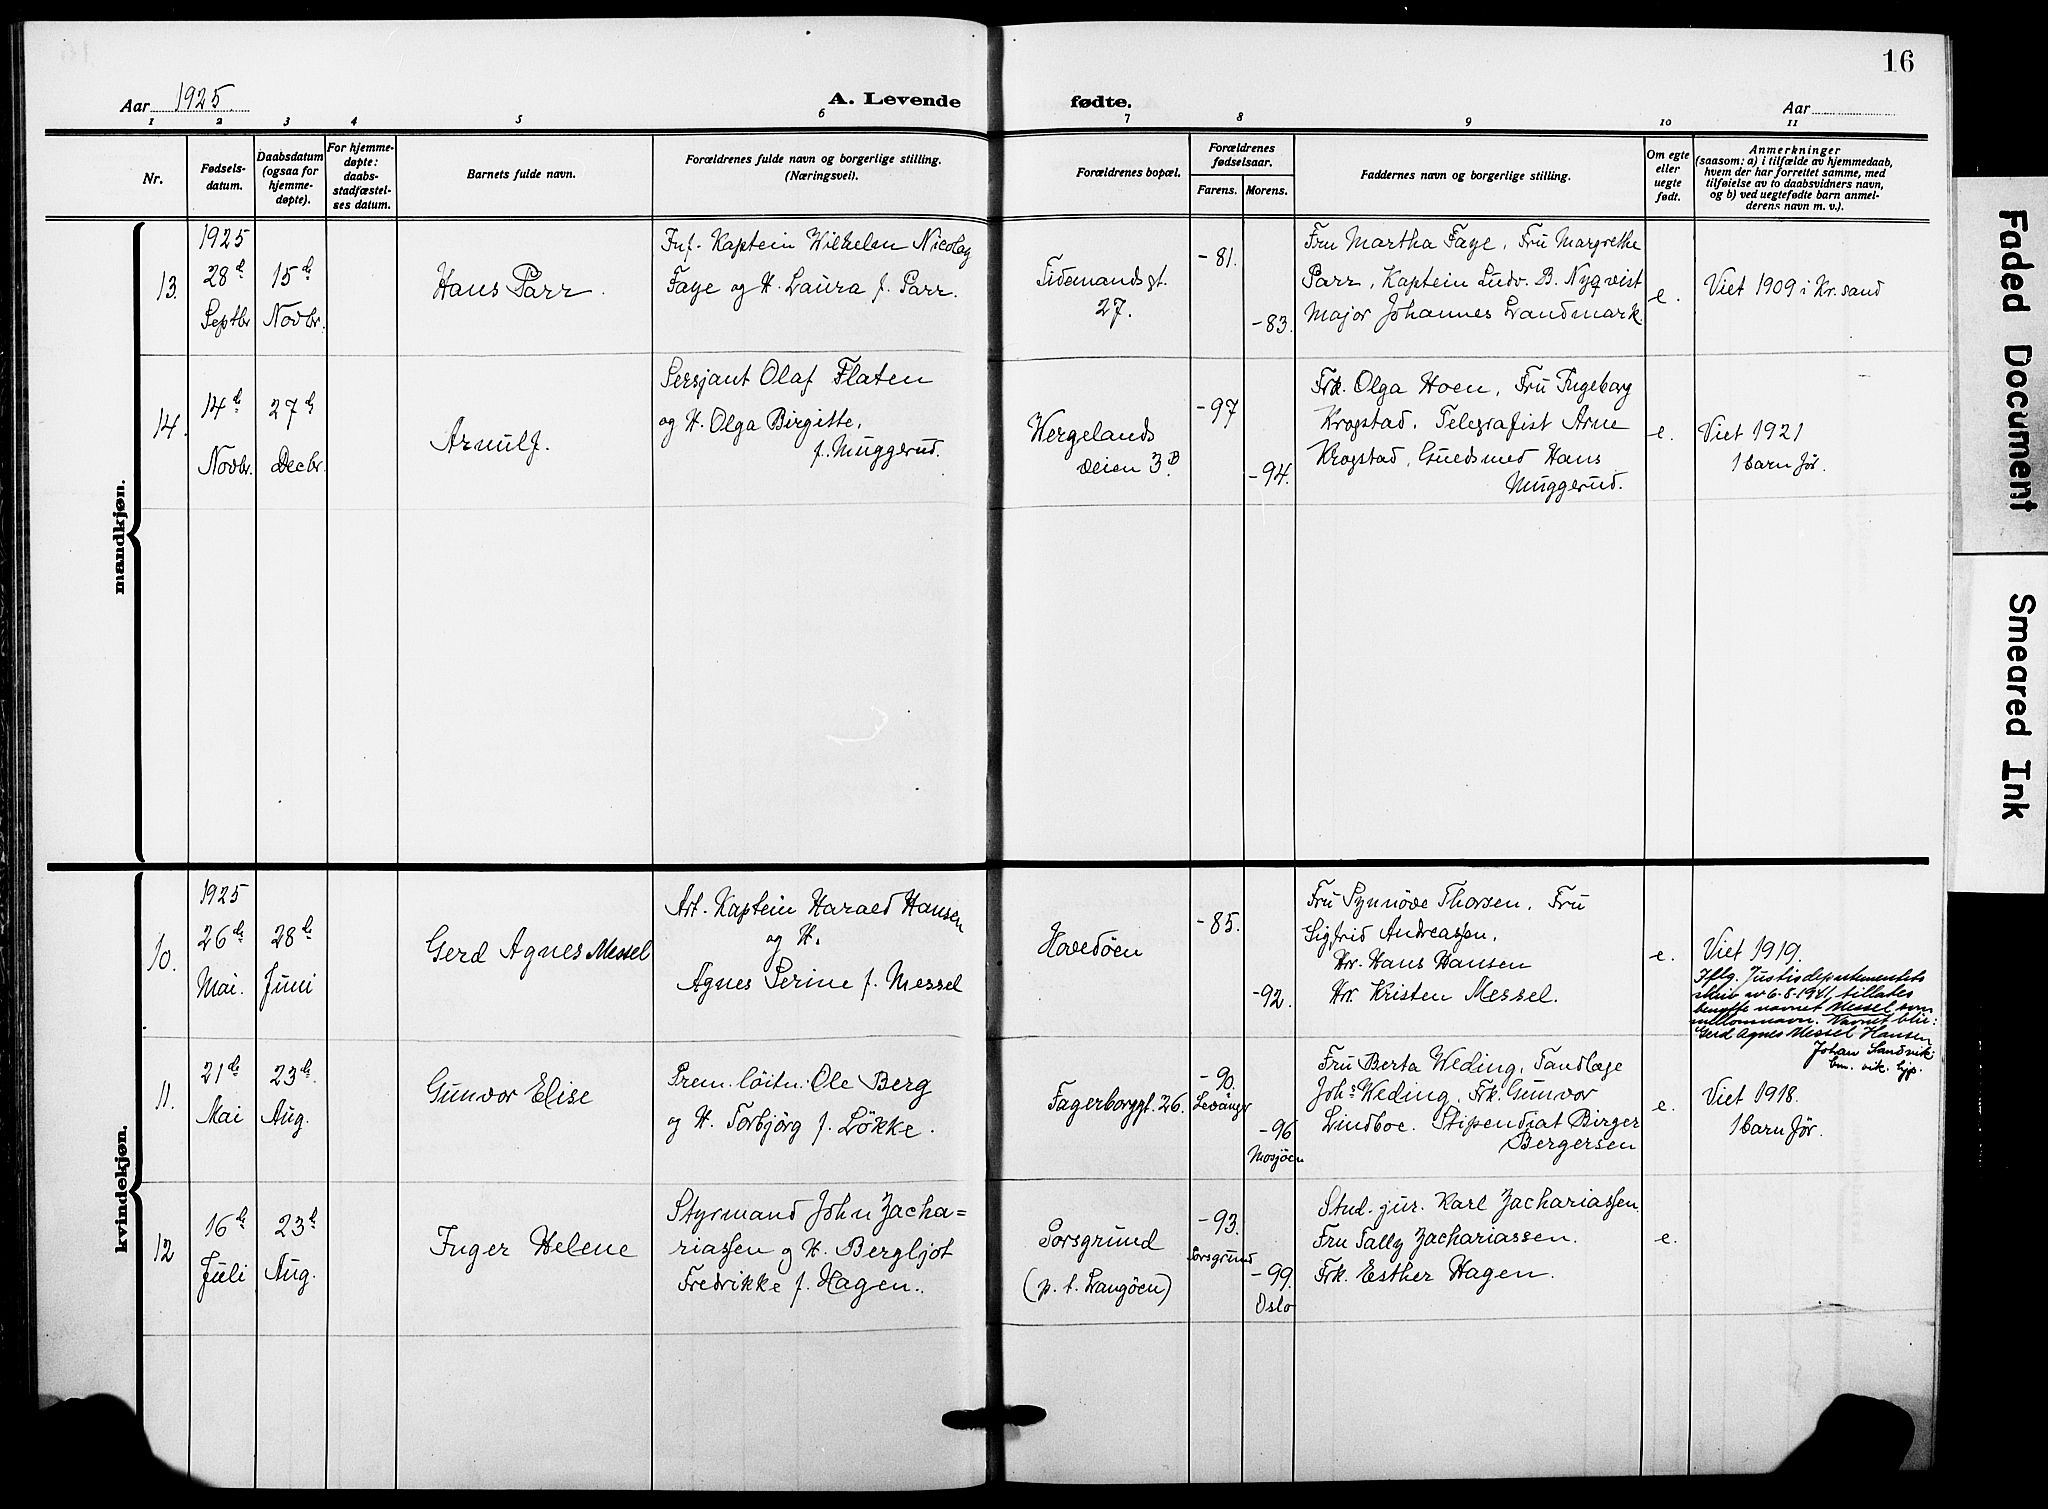 16
Aar 1925.
A. Levende fødte.
Aar
1 2 3 4 5 6 7 8 9 10 11
Nr.
Fødsels-
datum.
Daabsdatum
(ogsaa for
hjemme-
døpte).
For hjemme-
døpte:
daabs-
stadfæstel-
ses datum.
Barnets fulde navn.
Forældrenes fulde navn og borgerlige stilling.
(Næringsvei).
Forældrenes bopæl.
Forældrenes
fødselsaar.
Farens. Morens.
Faddernes navn og borgerlige stilling.
Om egte
eller
uegte
født.
Anmerkninger
(saasom: a) i tilfælde av hjemmedaab,
hvem der har forrettet samme, med
tilføielse av to daabsvidners navn,
og b) ved uegtefødte barn anmel-
derens navn m. v.).
mandkjøn.
13.
1925
28de
Septbr
15de
Novbr.
Hans Parr.
Inf. Kaptein Wilhelm Nicolay
Faye og H. Laura f. Parr.
Tidemandsgt.
27.
-81.
-83.
Fru Martha Faye, Fru Margrethe
Parr, Kaptein Ludv. B. Nyqvist
Major Johannes Landmark.
e.
Viet 1909 i Kr.sand
14.
14de
Novbr.
27de
Decbr.
Arnulf.
Sersjant Olaf Flaten
og H. Olga Birgitte,
f. Muggerud.
Wergelands
veien 3B.
-97
-94.
Frk. Olga Hoen, Fru Ingeborg
Krogstad, Telegrafist Arne
Krogstad, Guldsmed Hans
Muggerud.
e.
Viet 1921
1 barn før.
kvindekjøn.
10.
1925
26de
Mai.
28de
Juni
Gerd Agnes Messel
Art. Kaptein Harald Hansen
og H.
Agnes Serine f. Messel
Hovedöen
-85.
-92.
Fru Synnöve Thorsen, Fru
Sigfrid Andreassen,
Hr. Hans Hansen
Hr. Kristen Messel.
e.
Viet 1919.
Iflg. Justisdepartementets
skriv av 6-8-1941, tillates
benytte navnet Messel som
mellomnavn. Navnet blir:
Gerd Agnes Messel Hansen
Johan Sandvik
11.
21de
Mai
23de
Aug.
Gunvor Elise
Prem. löitn. Ole Berg
og H. Torbjörg f. Lökke.
Fagerborggt. 26.
-90.
Levanger
-96
Mosjöen
Fru Berta Weding, Tandlæge
Johs Weding, Frk. Gunvor
Lindboe. Stipendiat Birger
Bergersen
e.
Viet 1918.
1 barn før.
12
16de
Juli
23de
Aug.
Inger Helene
Styrmand John Zacha=
riassen og H. Bergljot
Fredrikke f. Hagen.
Porsgrund
(p. t. Langöen)
-93.
Porsgrund
-99.
Oslo
Stud. jur. Karl Zachariassen
Fru Tally Zachariassen.
Frk. Esther Hagen.
e.
Faded Document
Smeared Ink